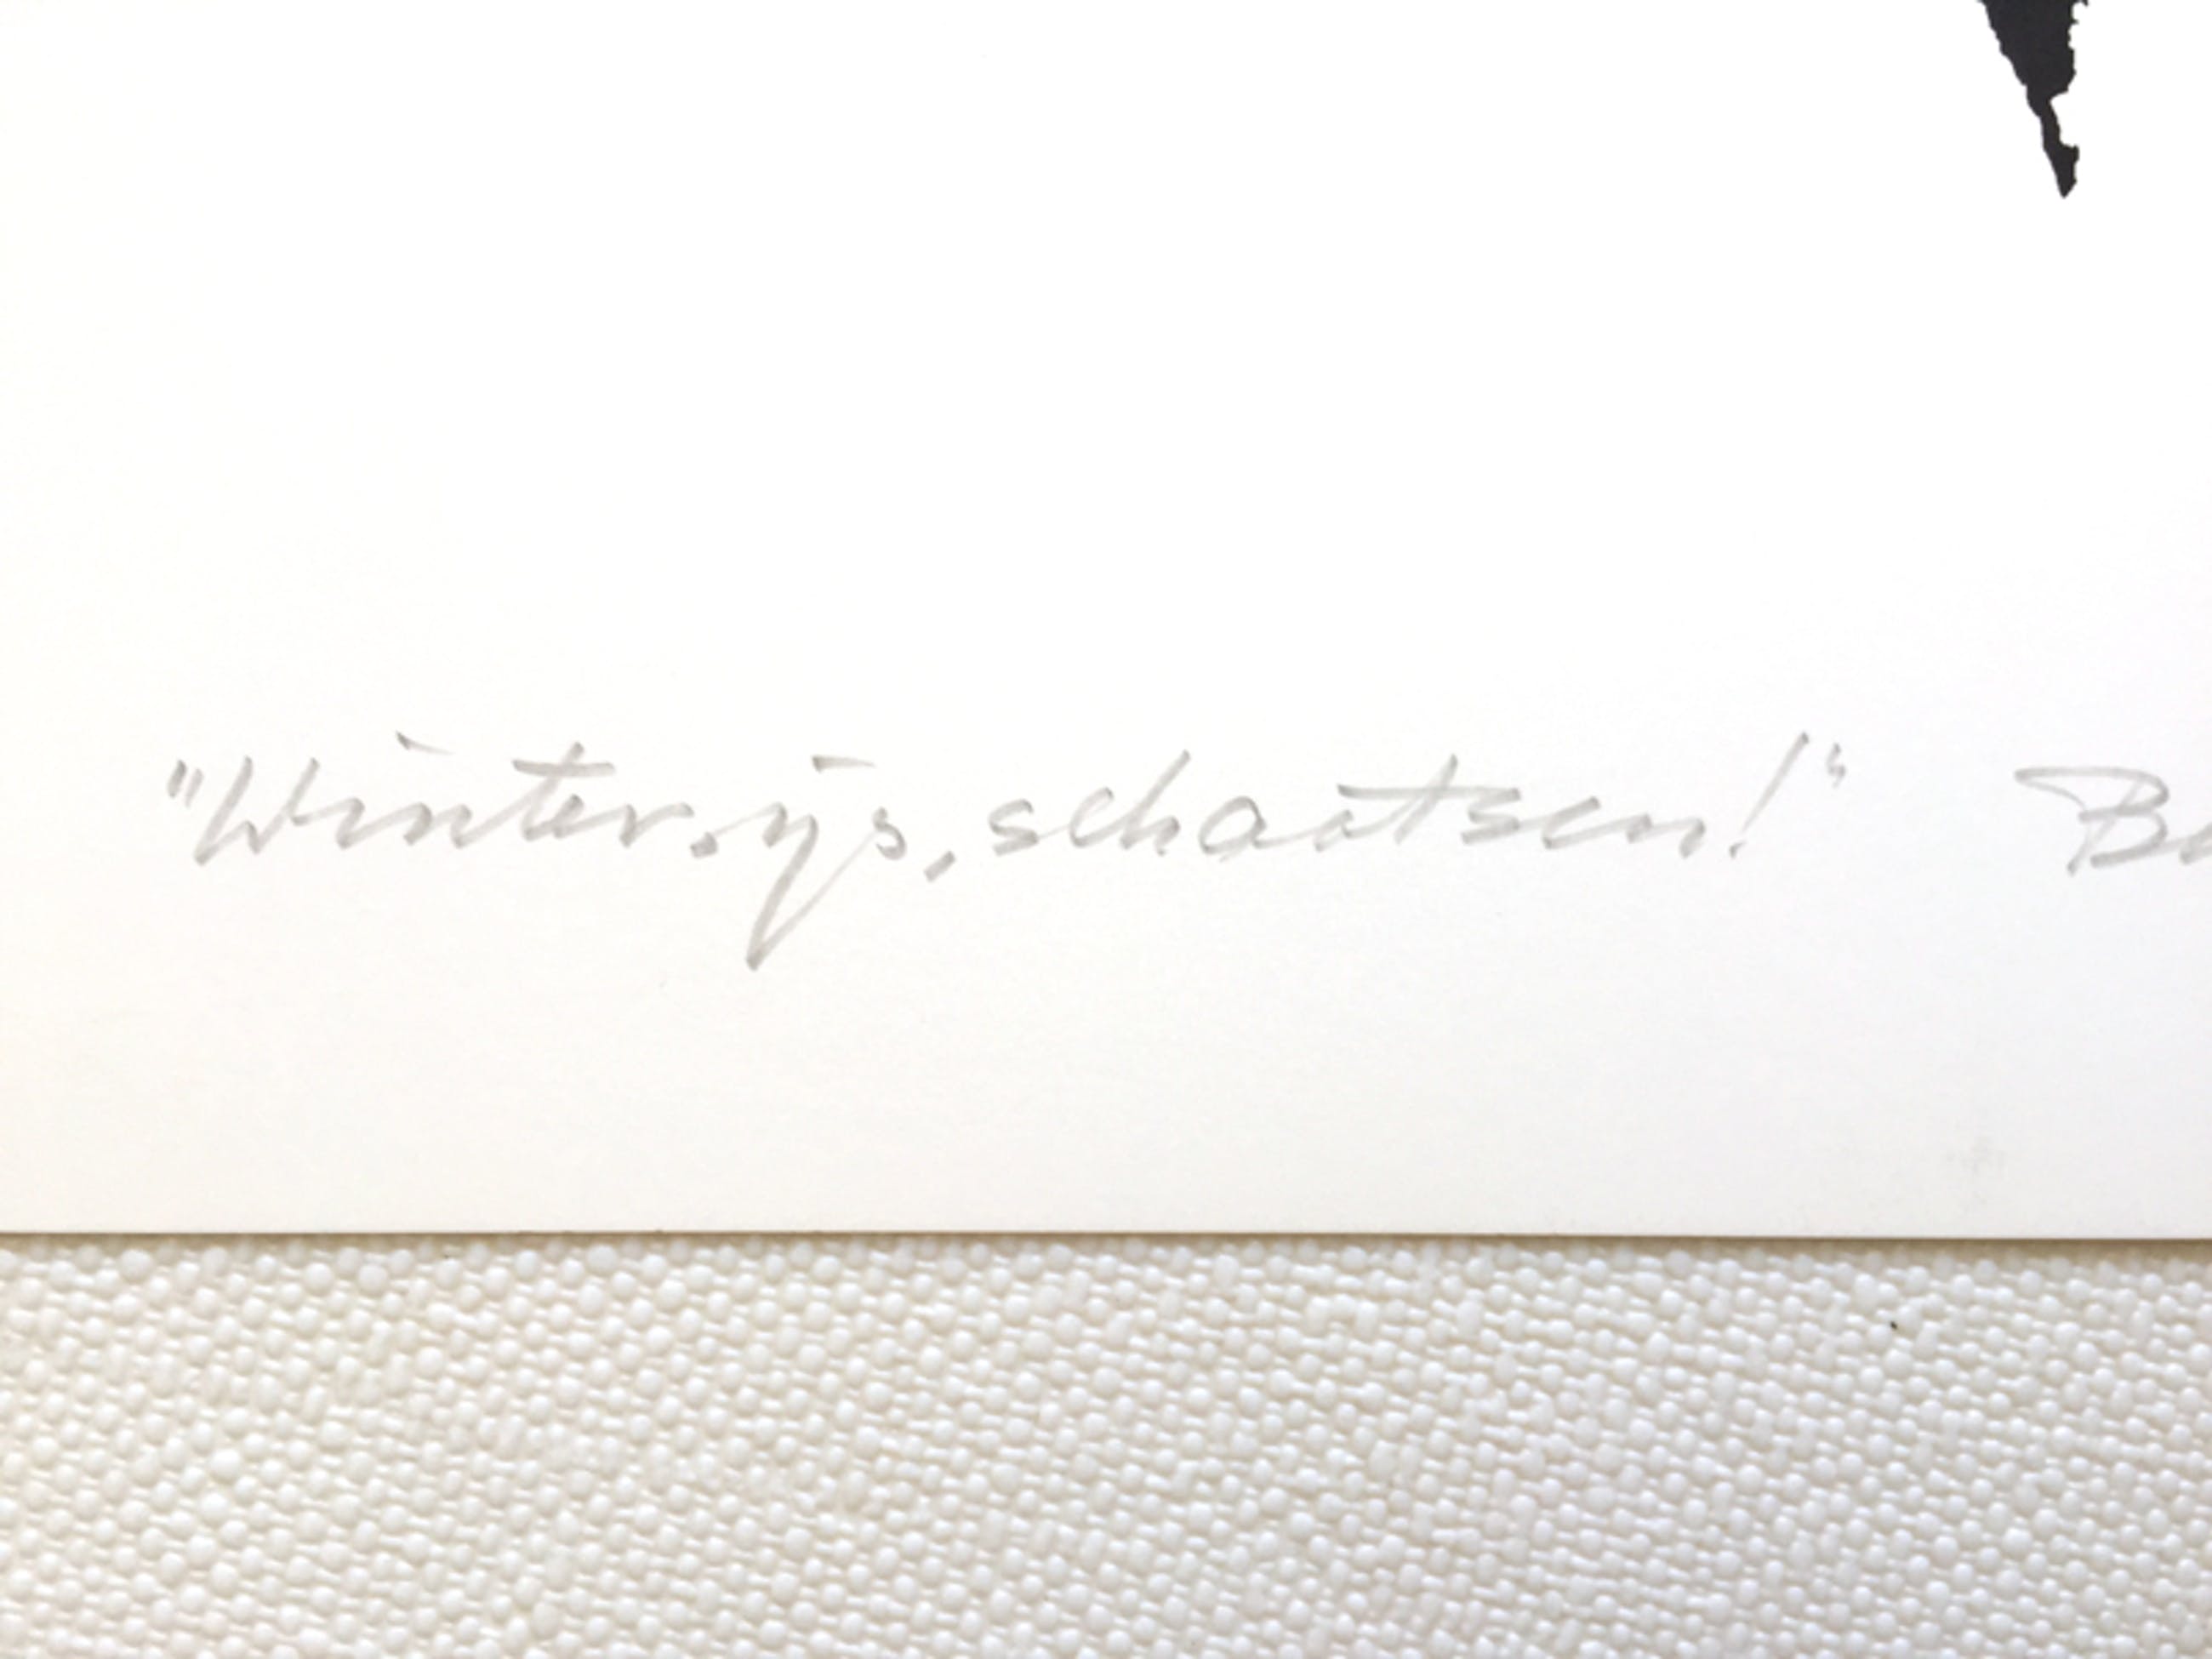 "Winter, ijs, schaatsen!"